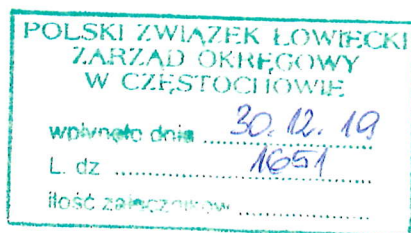 POLSKI ZWIĄZEK ŁOWIECKI
ZARZĄD OKRĘGOWY
W CZĘSTOCHOWIE
wpłynęło dnia ........ 30.12.19
L. dz ........ 1651
ilość załączników ........